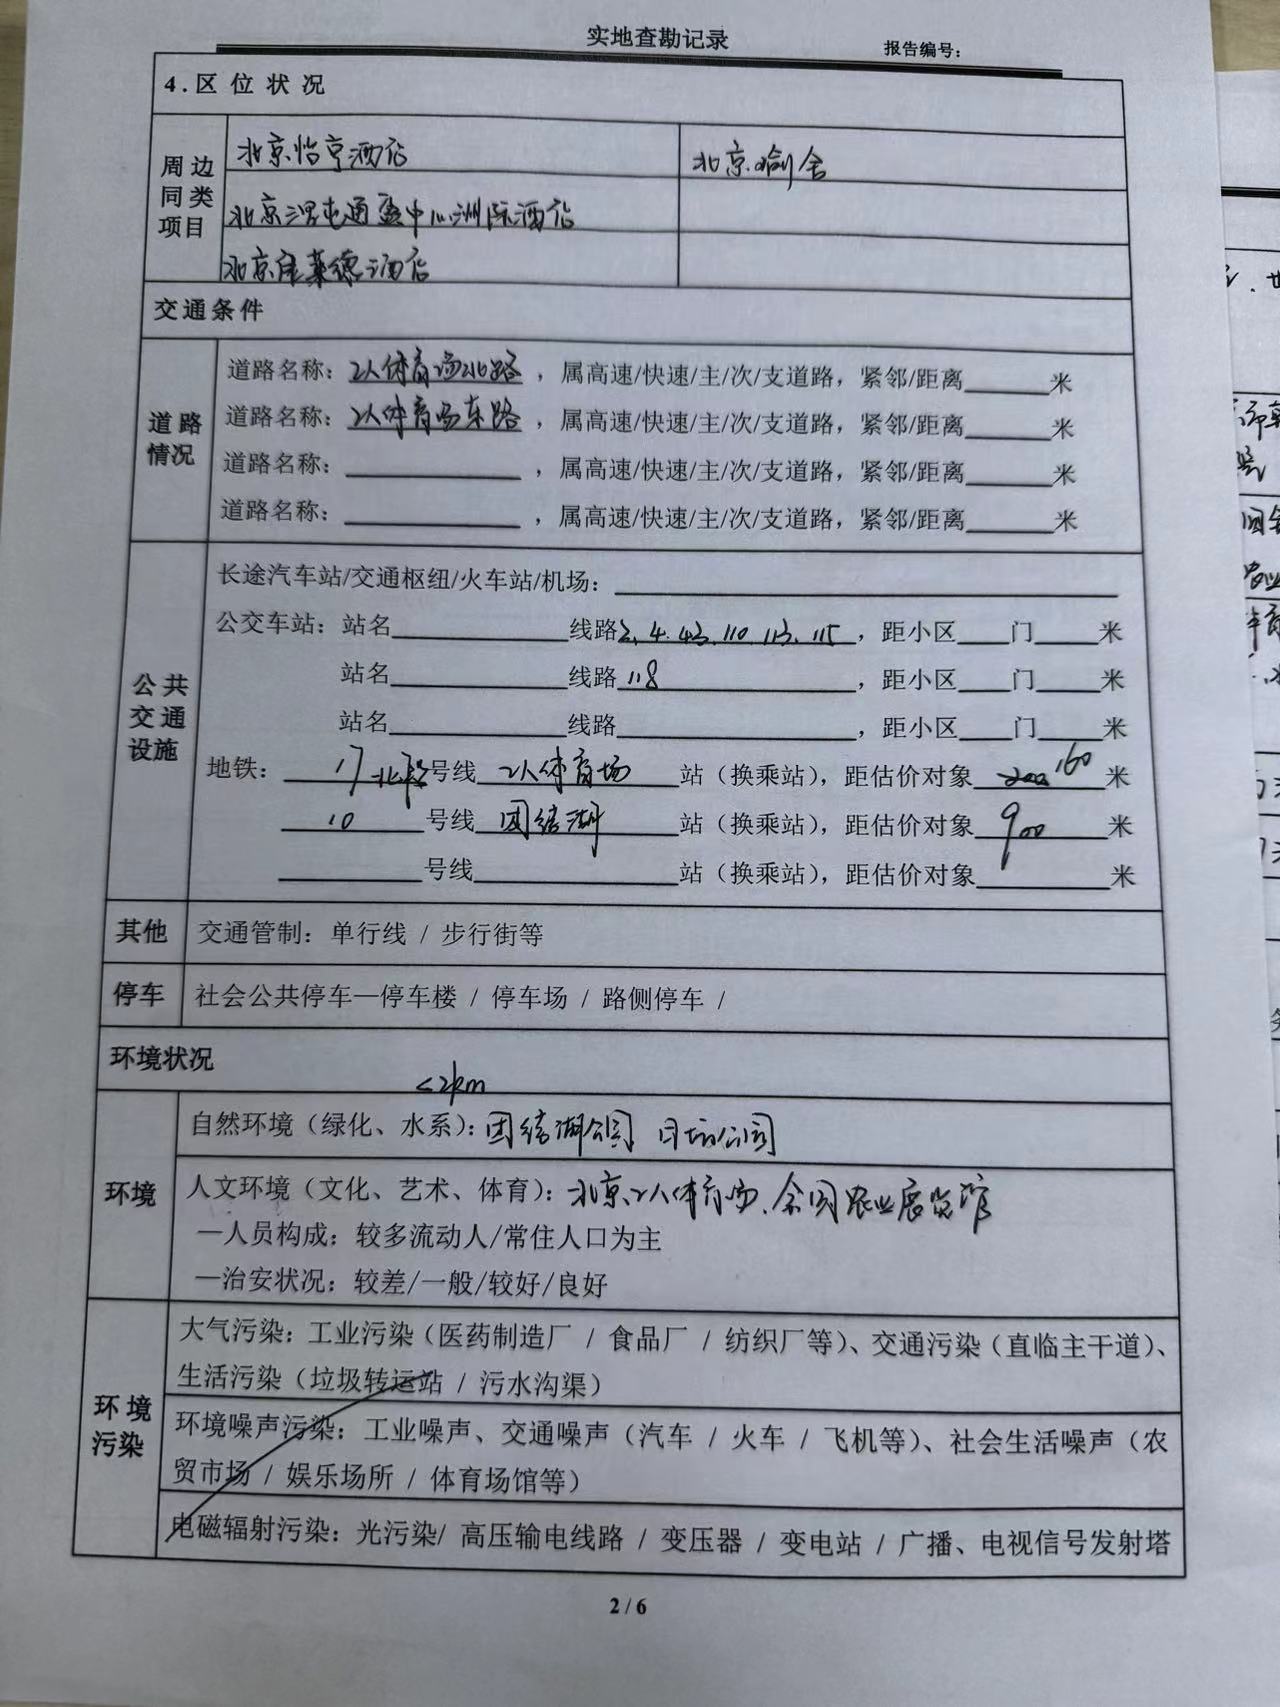 实地查勘记录 报告编号：
4.区 位 状 况
周 边 同 类 项目
北京怡亨酒店 北京瑜舍
北京三里屯通盈中心洲际酒店
北京 酒店
交通条件
道 路 情况
道路名称：工人体育场北路，属高速/快速/主/次/支道路，紧邻/距离______米
道路名称：工人体育场东路，属高速/快速/主/次/支道路，紧邻/距离______米
道路名称：____________，属高速/快速/主/次/支道路，紧邻/距离______米
道路名称：____________，属高速/快速/主/次/支道路，紧邻/距离______米
公 共 交 通 设施
长途汽车站/交通枢纽/火车站/机场：____________
公交车站：站名____________线路2.4.43.110 113.115，距小区____门____米
站名____________线路118，距小区____门____米
站名____________线路____________，距小区____门____米
地铁：17北段号线 工人体育场 站（换乘站），距估价对象 160 米
10 号线 团结湖 站（换乘站），距估价对象 900 米
______号线____________站（换乘站），距估价对象______米
其他 交通管制：单行线 / 步行街等
停车 社会公共停车—停车楼 / 停车场 / 路侧停车 /
环境状况
<2km
环境
自然环境（绿化、水系）：团结湖公园 日坛公园
人文环境（文化、艺术、体育）：北京工人体育场、全国农业展览馆
—人员构成：较多流动人/常住人口为主
—治安状况：较差/一般/较好/良好
环 境 污染
大气污染：工业污染（医药制造厂 / 食品厂 / 纺织厂等）、交通污染（直临主干道）、
生活污染（垃圾转运站 / 污水沟渠）
环境噪声污染：工业噪声、交通噪声（汽车 / 火车 / 飞机等）、社会生活噪声（农
贸市场 / 娱乐场所 / 体育场馆等）
电磁辐射污染：光污染/ 高压输电线路 / 变压器 / 变电站 / 广播、电视信号发射塔
2 / 6